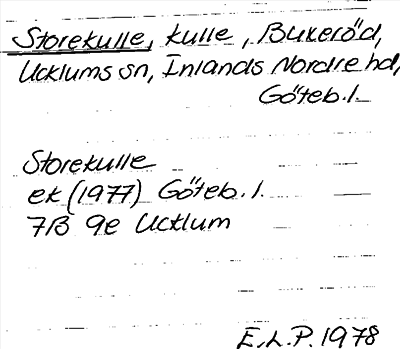 Storekulle, kulle, Bukeröd,
Ucklums sn, Inlands Nordre hd,
Göteb. l.
Storekulle
ek (1977) Göteb. l.
7B 9e Ucklum
E.L.P. 1978